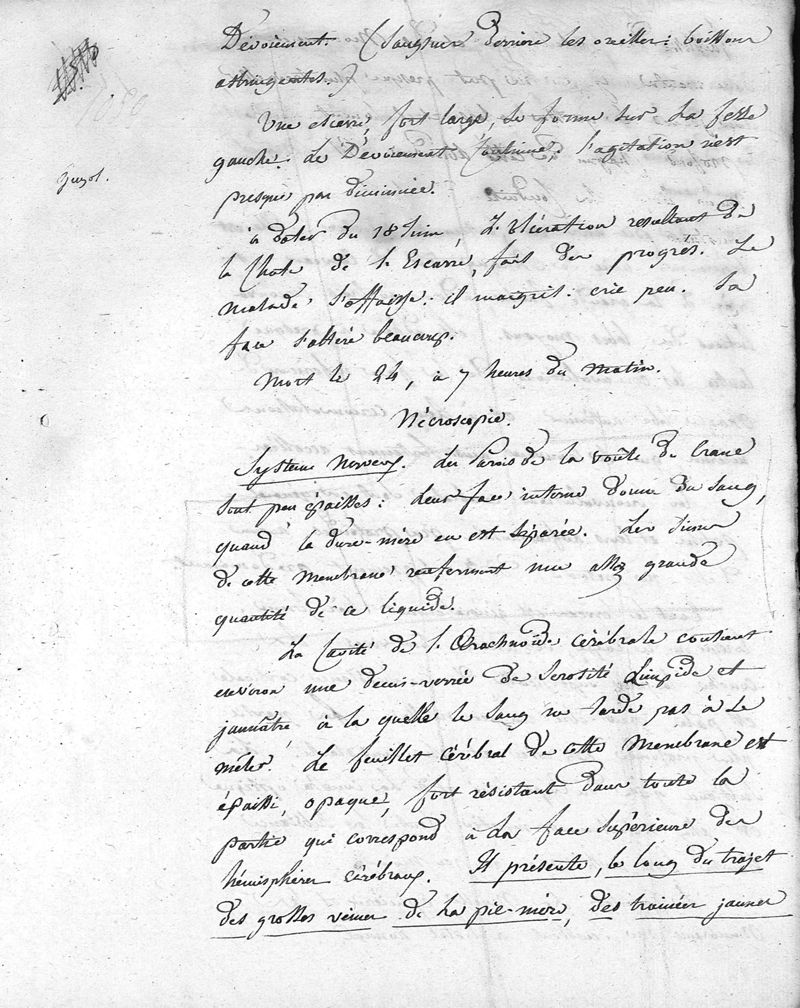 Dévoiement. (Sangsues derrière les oreilles : boissons
astringentes.)
Une escarre, fort large, se forme sur la fesse
gauche. Le Dévoiement Continue, l'agitation n'est
presque pas diminuée.
à dater du 18 Juin L'ulcération résultant de
la Chute de l'Escarre, fait des progrès. Le
malade s'affaisse : il maigrit. crie peu. Sa
face s'altère beaucoup.
Mort le 24, à 7 heures du Matin.
Nécroscopie.
Système Nerveux. Les Parois de la voûte du Crane
sont peu épaisses : leur face interne donne du Sang,
quand la dure-mère en est séparée. Les Sinus
de cette Membrane renferment une assez grande
quantité de ce liquide.
La Cavité de l'Arachnoïde cérébrale contient
environ une demi-verrée de Sérosité Limpide et
jaunâtre à la quelle le sang ne tarde pas à se
mêler. Le feuillet cérébral de cette Membrane est
épaissi, opaque, fort résistant dans toute la
partie qui correspond à la face supérieure des
hémisphères cérébraux. Il présente, le long du trajet
des grosses veines de la pie-mère, des trainées jaunes